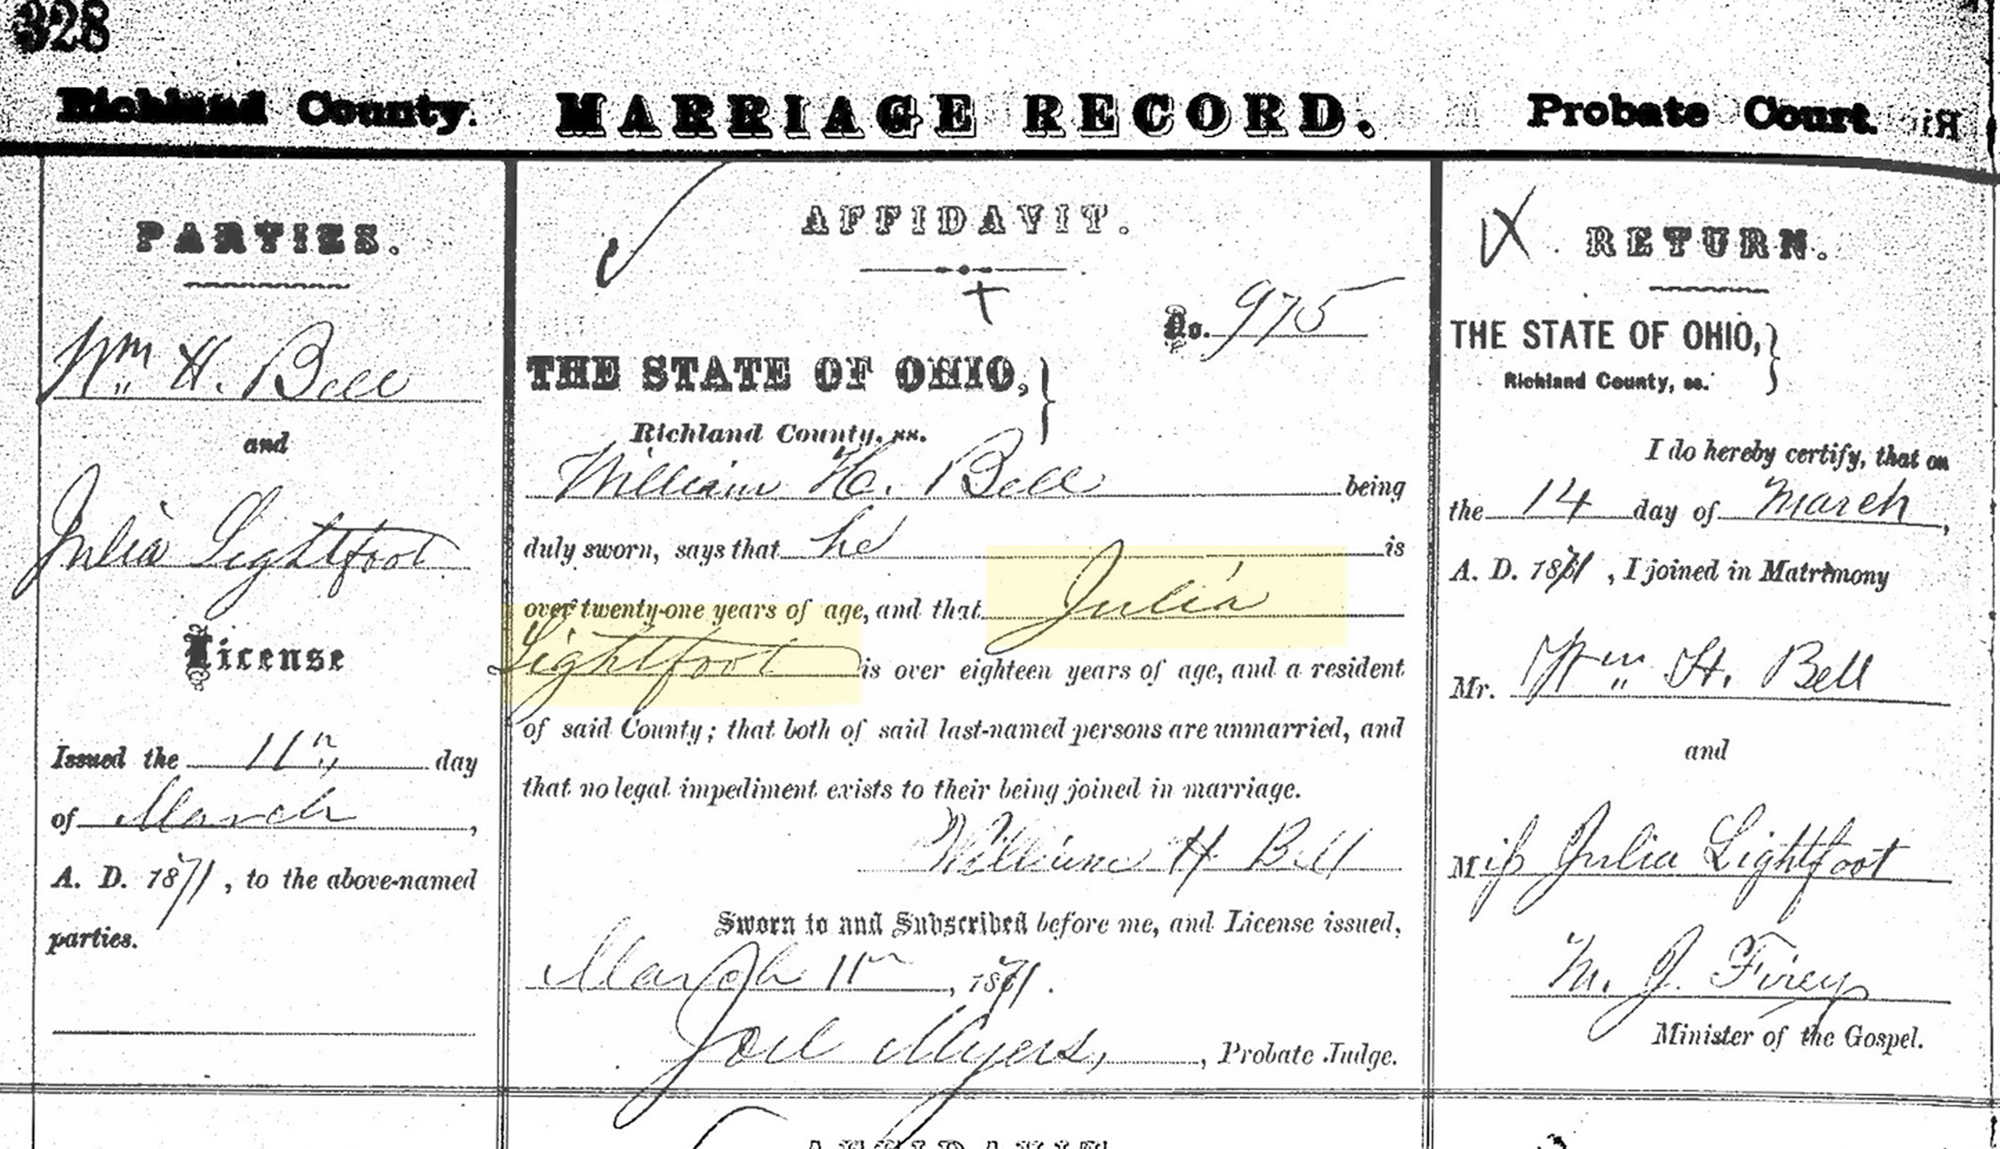 328
Richland County. MARRIAGE RECORD. Probate Court.
PARTIES.
Wm H. Bell
and
Julia Lightfoot
License
Issued the 11th day
of March,
A. D. 1871, to the above-named
parties.
AFFIDAVIT.
No. 975
THE STATE OF OHIO,
Richland County, ss.
William H. Bell being
duly sworn, says that he is
over twenty-one years of age, and that Julia
Lightfoot is over eighteen years of age, and a resident
of said County; that both of said last-named persons are unmarried, and
that no legal impediment exists to their being joined in marriage.
William H Bell
Sworn to and Subscribed before me, and License issued,
March 11th, 1871.
Joel Myers, Probate Judge.
RETURN.
THE STATE OF OHIO,
Richland County, ss.
I do hereby certify, that on
the 14 day of March,
A. D. 1871, I joined in Matrimony
Mr. Wm H. Bell
and
Miss Julia Lightfoot
M. J. Firey
Minister of the Gospel.
AFFIDAVIT